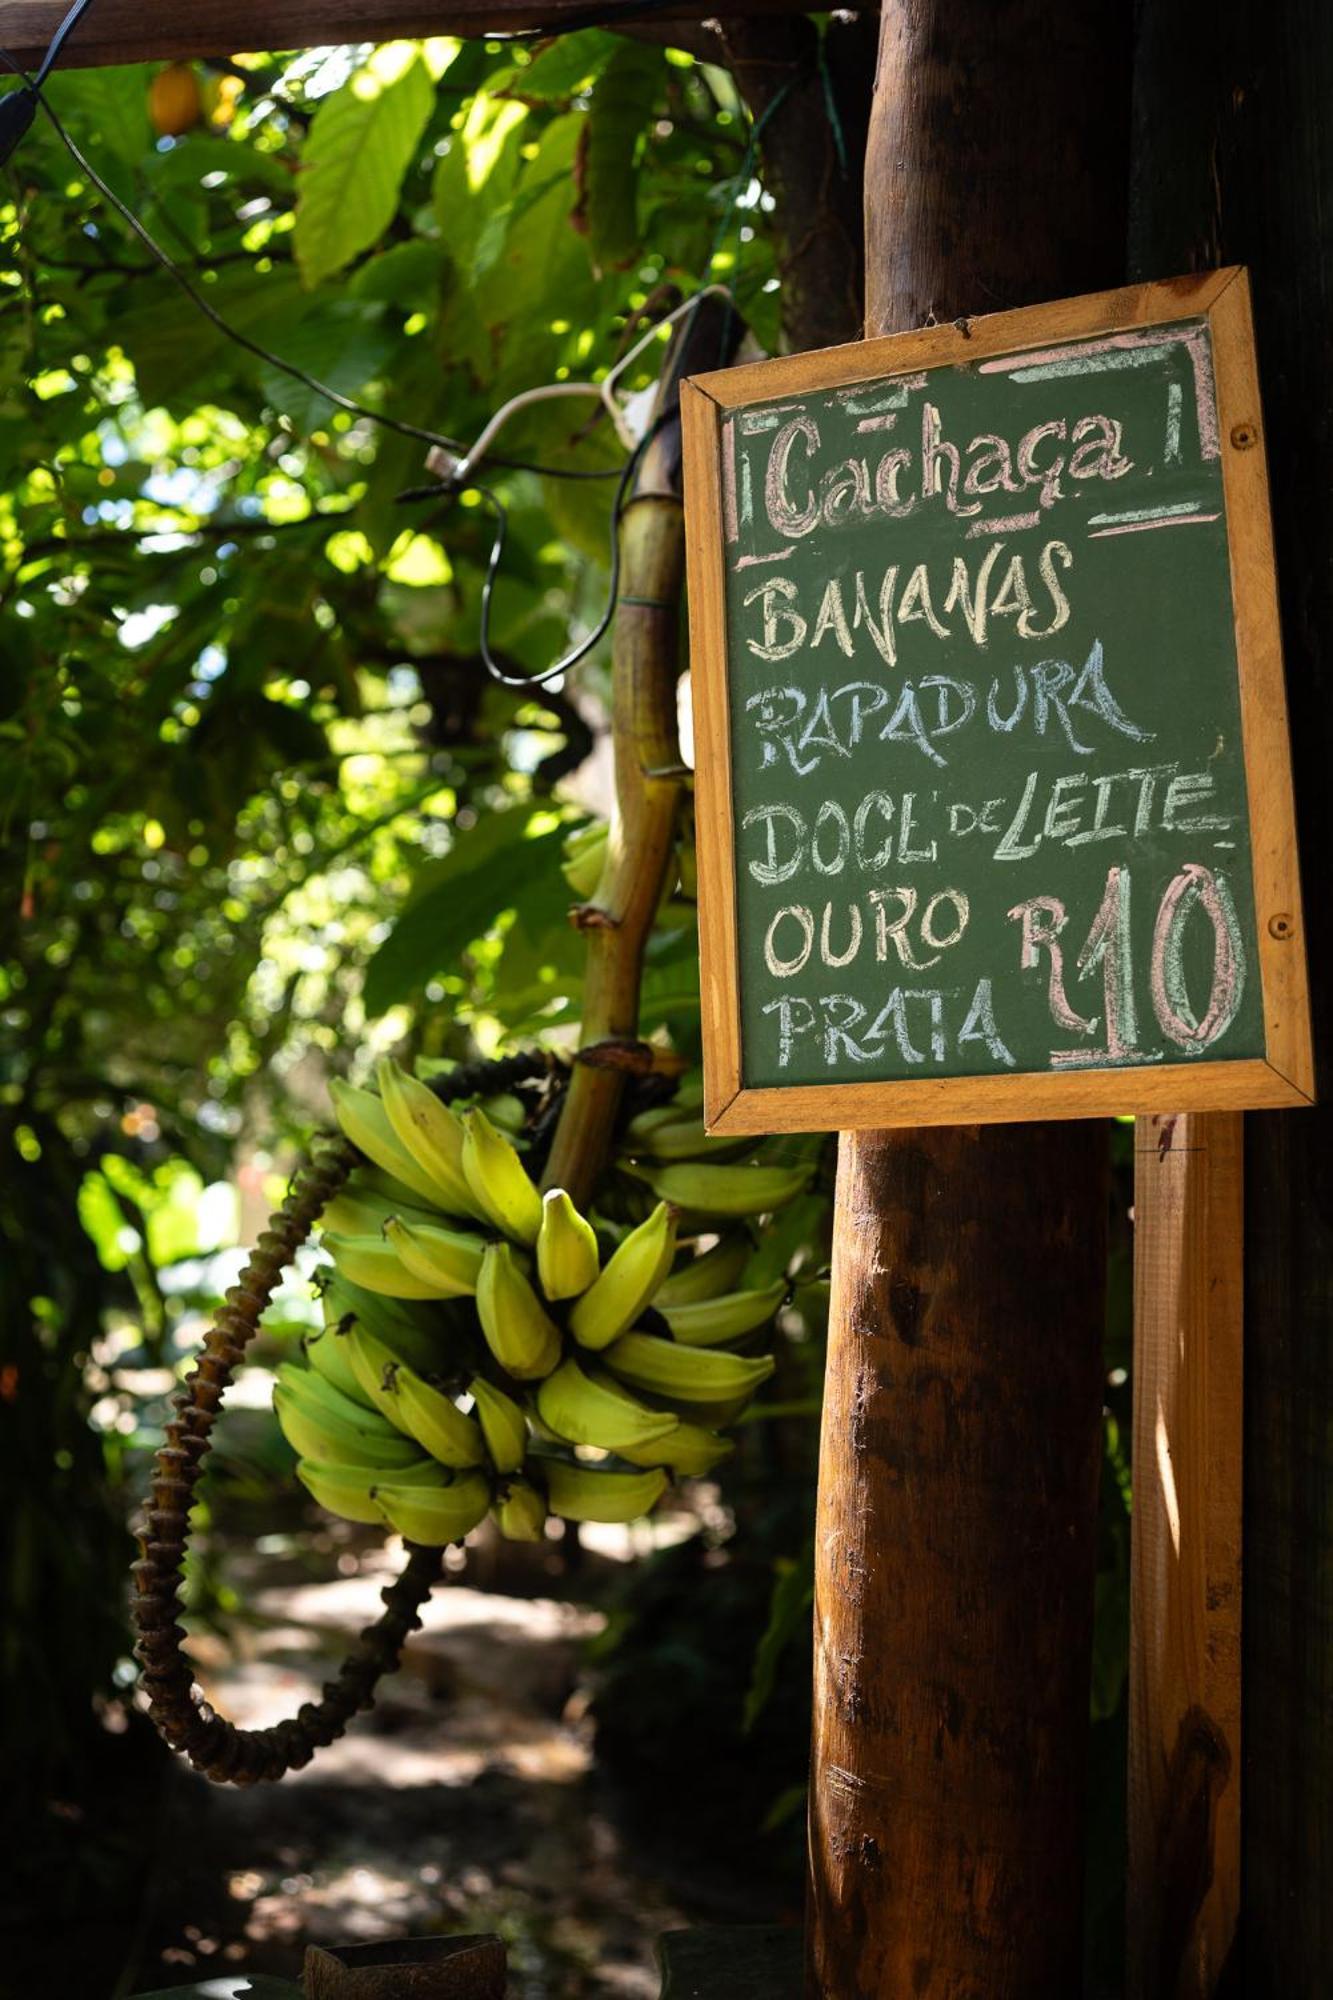 Cachaça
BANANAS
RAPADURA
DOCE DE LEITE
OURO R10
PRATA